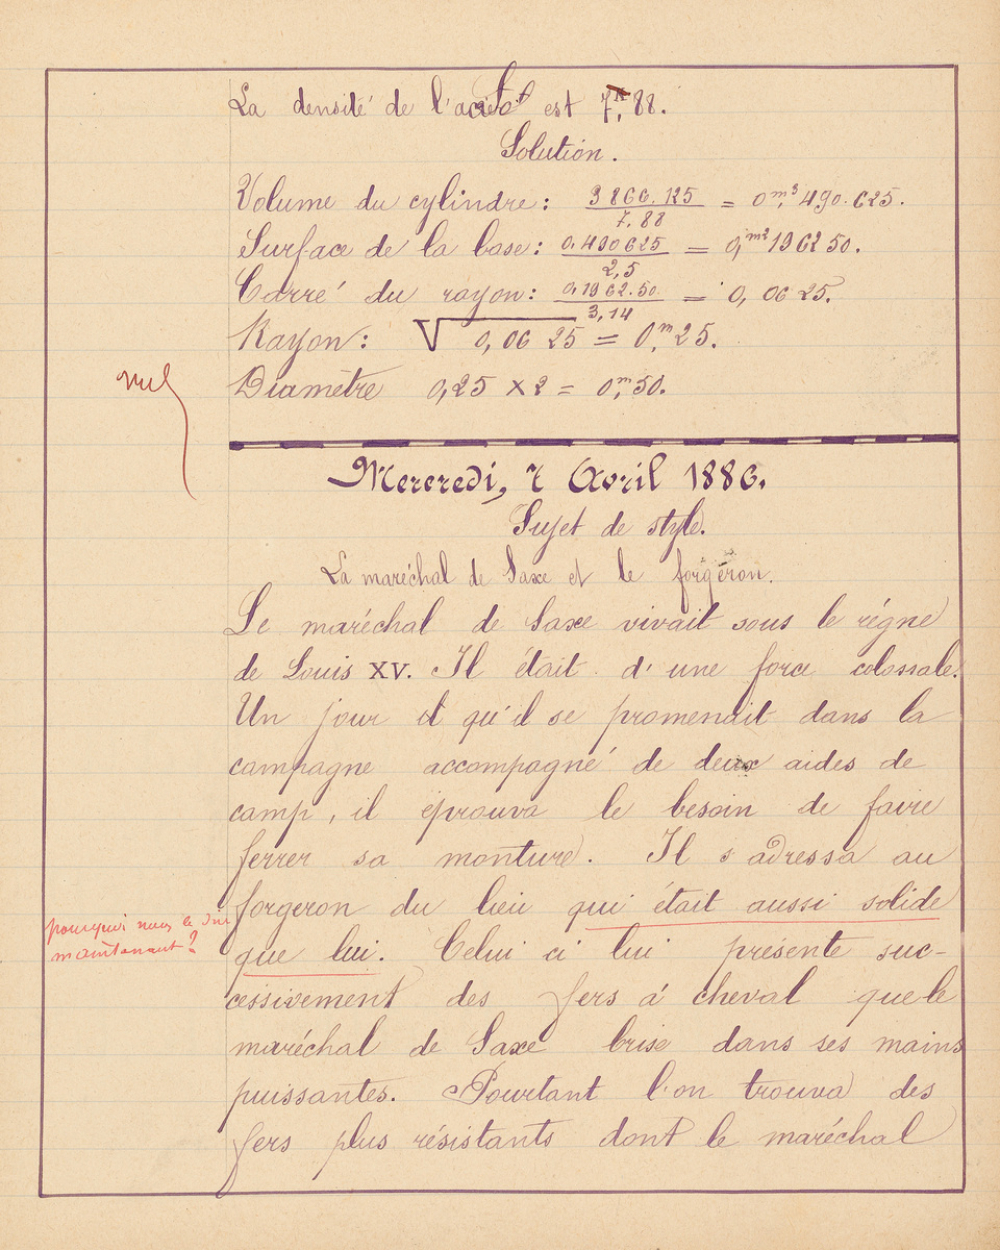 La densité de l'acier est 7,88.
Solution.
Volume du cylindre: 3866.125 / 7,88 = 0,m³490.625.
Surface de la base: 0,490625 / 2,5 = 0,m²196250.
Carré du rayon: 0,1962.50 / 3,14 = 0,0625.
Rayon: √0,0625 = 0,m25.
Diamètre 0,25 × 2 = 0,m50.
nul
Mercredi, 7 Avril 1886.
Sujet de style.
Le maréchal de Saxe et le forgeron.
Le maréchal de Saxe vivait sous le règne
de Louis XV. Il était d'une force colossale.
Un jour et qu'il se promenait dans la
campagne accompagné de deux aides de
camp, il éprouva le besoin de faire
ferrer sa monture. Il s'adressa au
forgeron du lieu qui était aussi solide
pourquoi nous le dire
maintenant?
que lui. Celui ci lui présente suc-
cessivement des fers à cheval que le
maréchal de Saxe brise dans ses mains
puissantes. Pourtant l'on trouva des
fers plus résistants dont le maréchal